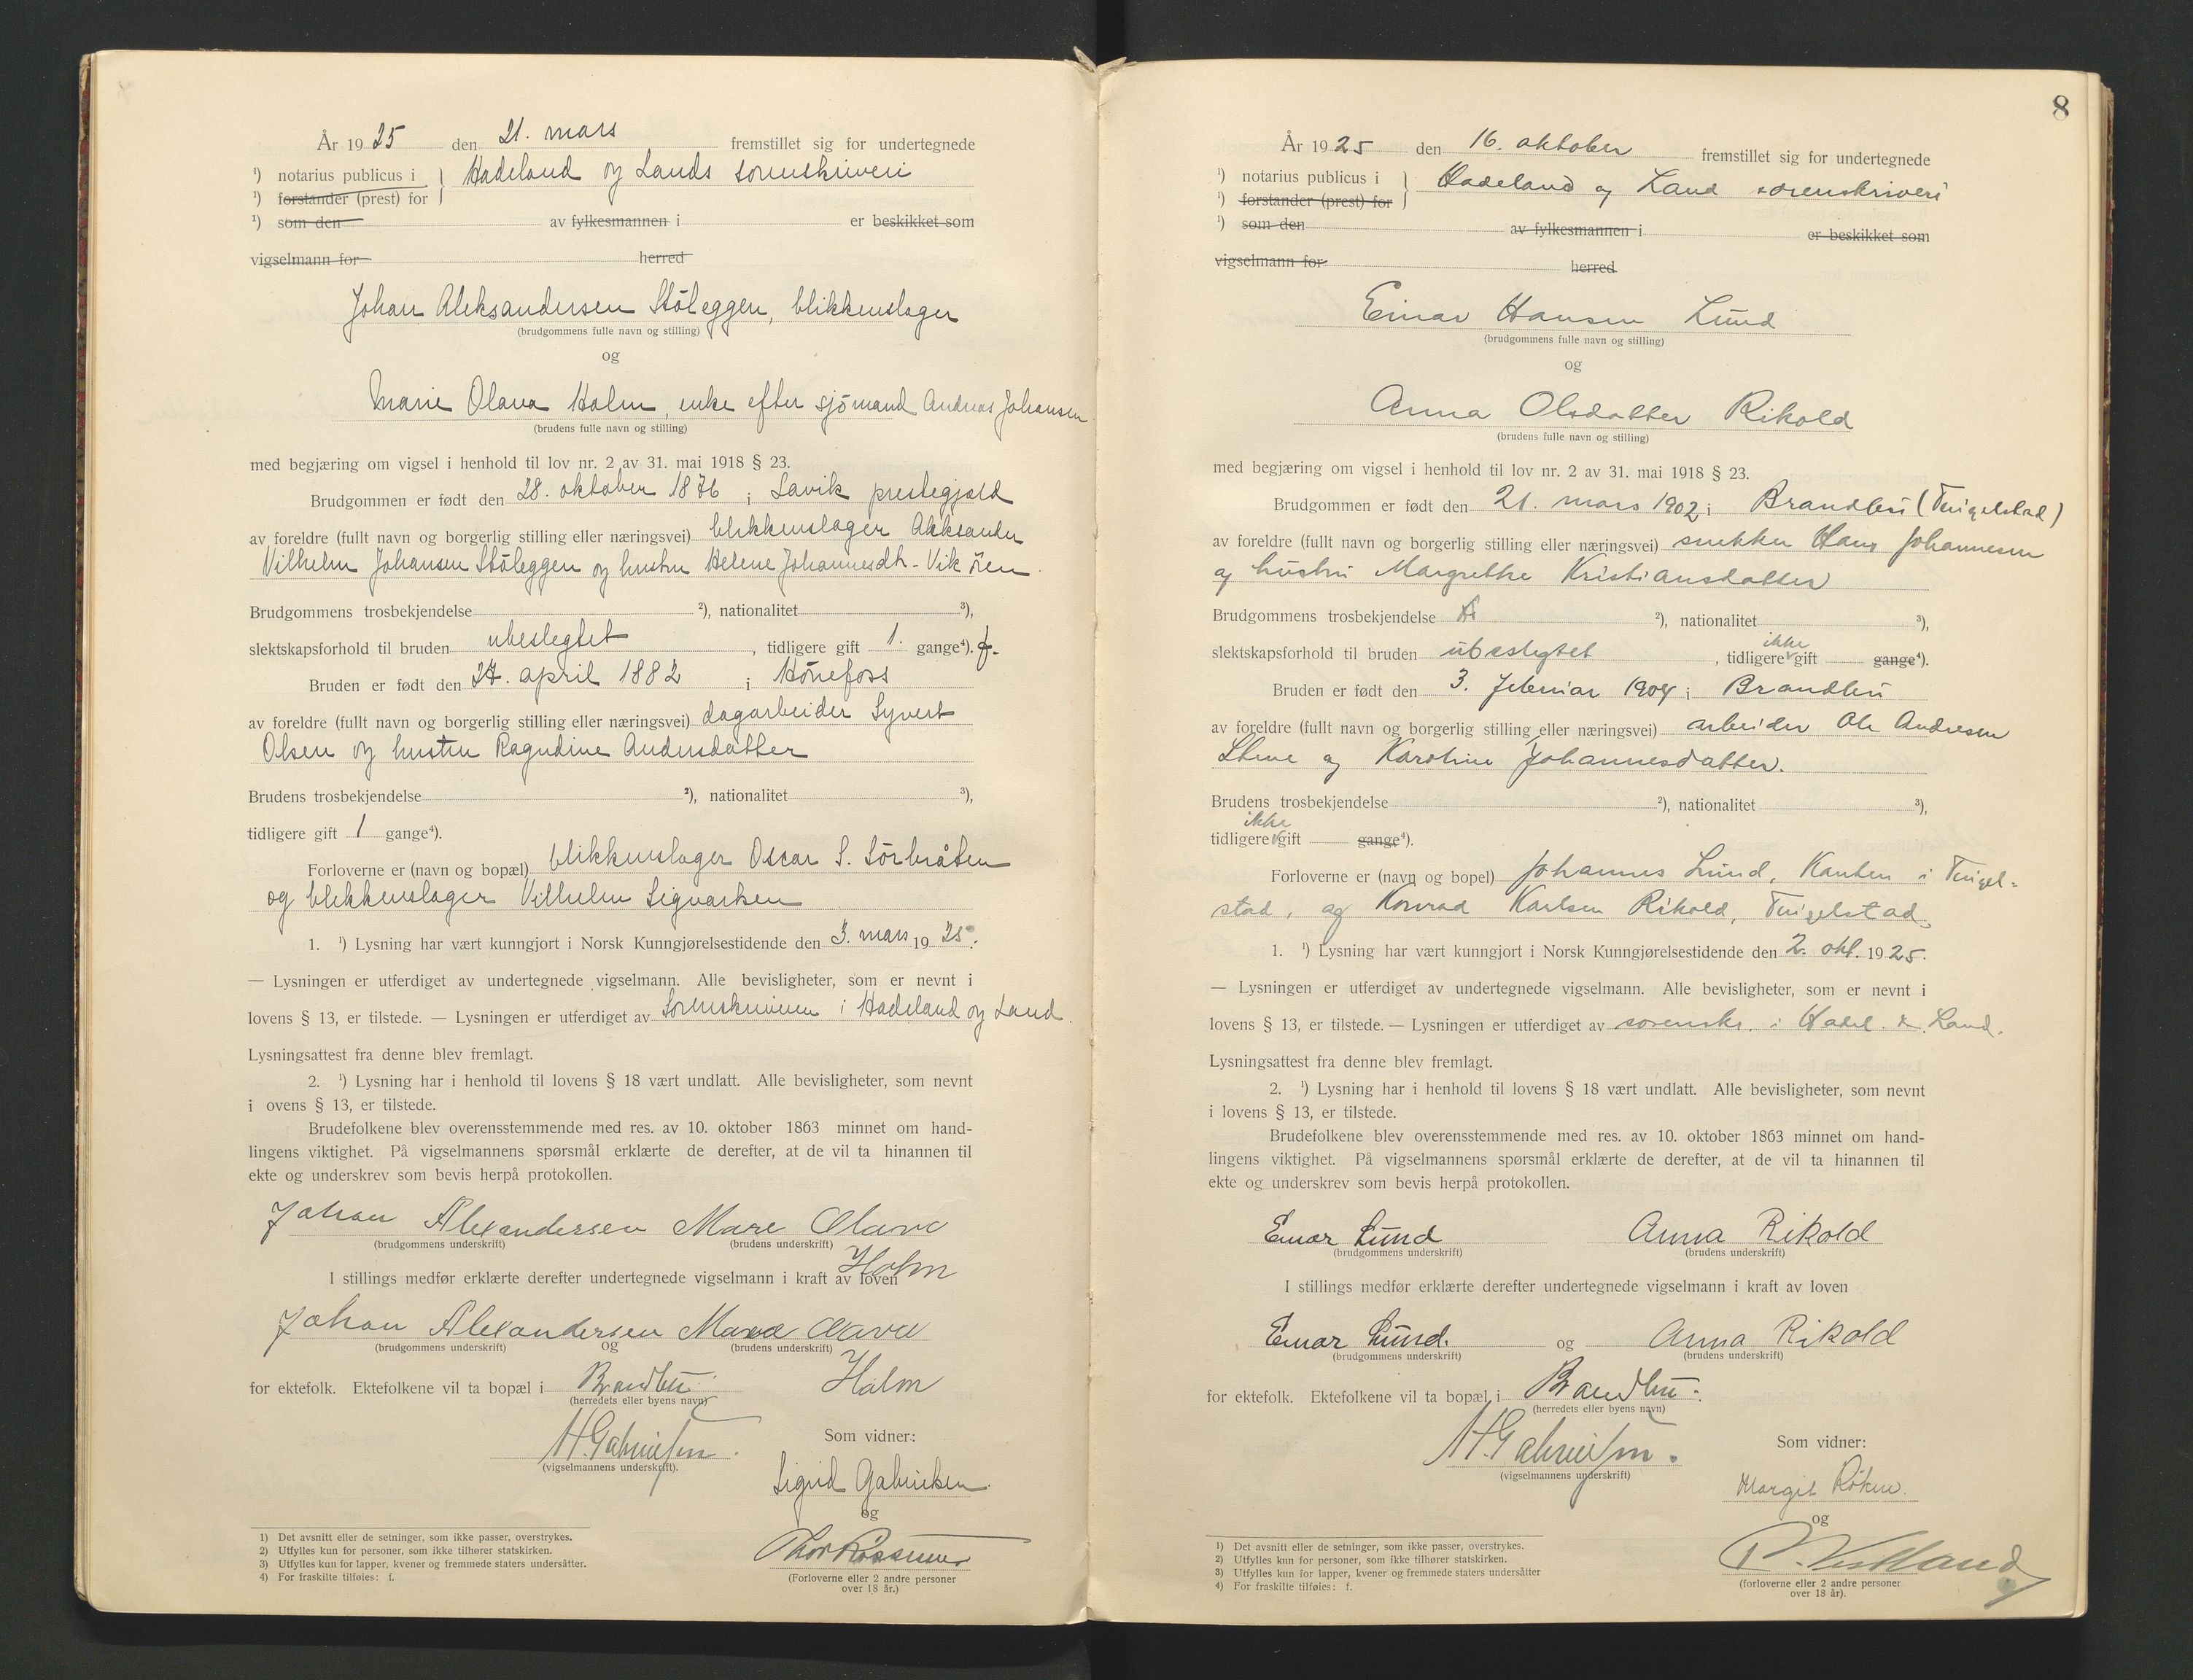 År 1925 den 21. mars fremstillet sig for undertegnede
¹) notarius publicus i } Hadeland og Lands sorenskriveri
¹) forstander (prest) for
¹) som den av fylkesmannen i er beskikket som
vigselmann for herred
Johan Aleksandersen Stöleggen, blikkenslager
(brudgommens fulle navn og stilling)
og
Marie Olava Holm, enke efter sjömand Andreas Johansen
(brudens fulle navn og stilling)
med begjæring om vigsel i henhold til lov nr. 2 av 31. mai 1918 § 23.
Brudgommen er født den 28. oktober 1876 i Lavik prestegjæld
av foreldre (fullt navn og borgerlig stilling eller næringsvei) blikkenslager Aleksander
Vilhelm Johansen Stöleggen og hustru Helene Johannesdtr. Vikören
Brudgommens trosbekjendelse ²), nationalitet ³),
slektskapsforhold til bruden ubeslegtet, tidligere gift 1. gange⁴). f.
Bruden er født den 24. april 1882 i Hönefoss
av foreldre (fullt navn og borgerlig stilling eller næringsvei) dagarbeider Syvert
Olsen og hustru Ragndine Andersdatter
Brudens trosbekjendelse ²), nationalitet ³),
tidligere gift 1 gange⁴).
Forloverne er (navn og bopæl) blikkenslager Oscar S. Sörbråten
og blikkenslager Vilhelm Sigvartsen
1. ¹) Lysning har vært kunngjort i Norsk Kunngjørelsestidende den 3. mars 1925.
— Lysningen er utferdiget av undertegnede vigselmann. Alle bevisligheter, som er nevnt i
lovens § 13, er tilstede. — Lysningen er utferdiget av Sorenskriveren i Hadeland og Land.
Lysningsattest fra denne blev fremlagt.
2. ¹) Lysning har i henhold til lovens § 18 vært undlatt. Alle bevisligheter, som nevnt
i ovens § 13, er tilstede.
Brudefolkene blev overensstemmende med res. av 10. oktober 1863 minnet om hand-
lingens viktighet. På vigselmannens spørsmål erklærte de derefter, at de vil ta hinannen til
ekte og underskrev som bevis herpå protokollen.
Johan Alexandersen Mare Olava
(brudgommens underskrift) (brudens underskrift)
Holm
I stillings medfør erklærte derefter undertegnede vigselmann i kraft av loven
Johan Alexandersen Mara Olava
(brudgommens underskrift) og (brudens underskrift)
for ektefolk. Ektefolkene vil ta bopæl i Brandbu. Holm
(herredets eller byens navn)
H. Gabrielsen.
(vigselmannens underskrift).
Som vidner:
Sigrid Gabrielsen.
og
(Forloverne eller 2 andre personer
over 18 år.)
1) Det avsnitt eller de setninger, som ikke passer, overstrykes.
2) Utfylles kun for personer, som ikke tilhører statskirken.
3) Utfylles kun for lapper, kvener og fremmede staters undersåtter.
4) For fraskilte tilføies: f.
8
År 1925 den 16. oktober fremstillet sig for undertegnede
¹) notarius publicus i } Hadeland og Land sorenskriveri
¹) forstander (prest) for
¹) som den av fylkesmannen i er beskikket som
vigselmann for herred
Einar Hansen Lund
(brudgommens fulle navn og stilling)
og
Anna Olsdatter Rikold
(brudens fulle navn og stilling)
med begjæring om vigsel i henhold til lov nr. 2 av 31. mai 1918 § 23.
Brudgommen er født den 21. mars 1902 i Brandbu (Tingelstad)
av foreldre (fullt navn og borgerlig stilling eller næringsvei) snekker Hans Johannesen
og hustru Margrethe Kristiansdatter
Brudgommens trosbekjendelse ²), nationalitet ³),
slektskapsforhold til bruden ubeslegtet, tidligere ikke gift gange⁴).
Bruden er født den 3. februar 1904 i Brandbu
av foreldre (fullt navn og borgerlig stilling eller næringsvei) arbeider Ole Andresen
Stene og Karoline Johannesdatter.
Brudens trosbekjendelse ²), nationalitet ³),
tidligere ikke gift gange⁴).
Forloverne er (navn og bopel) Johannes Lund, Kanten i Tingel-
stad, og Konrad Karlsen Rikold, Tingelstad.
1. ¹) Lysning har vært kunngjort i Norsk Kunngjørelsestidende den 2. okt. 1925.
— Lysningen er utferdiget av undertegnede vigselmann. Alle bevisligheter, som er nevnt i
lovens § 13, er tilstede. — Lysningen er utferdiget av sorenskr. i Hadel. & Land.
Lysningsattest fra denne blev fremlagt.
2. ¹) Lysning har i henhold til lovens § 18 vært undlatt. Alle bevisligheter, som nevnt
i lovens § 13, er tilstede.
Brudefolkene blev overensstemmende med res. av 10. oktober 1863 minnet om hand-
lingens viktighet. På vigselmannens spørsmål erklærte de derefter, at de vil ta hinannen til
ekte og underskrev som bevis herpå protokollen.
Einar Lund Anna Rikold
(brudgommens underskrift) (brudens underskrift)
I stillings medfør erklærte derefter undertegnede vigselmann i kraft av loven
Einar Lund. og Anna Rikold
(brudgommens underskrift) (brudens underskrift)
for ektefolk. Ektefolkene vil ta bopæl i Brandbu.
(herredets eller byens navn)
H. Gabrielsen.
(vigselmannens underskrift)
Som vidner:
Margit Röken.
og
(forloverne eller 2 andre personer
over 18 år).
1) Det avsnitt eller de setninger, som ikke passer, overstrykes.
2) Utfylles kun for personer, som ikke tilhører statskirken.
3) Utfylles kun for lapper, kvener og fremmede staters undersåtter
4) For fraskilte tilføies: f.